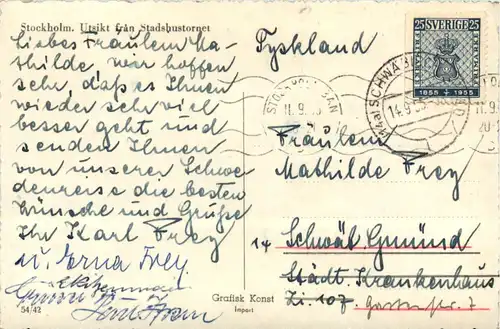 Stockholm. Utsikt från Stadshustornet
Liebes Fräulein Ma-
thilde, wir hoffen
sehr, daß es Ihnen
wieder sehr viel
besser geht und
senden Ihnen
von unserer Schwe
denreise die besten
Wünsche und Grüße
Ihr Karl Frey
u. Erna Frey.
54/42
Tyskland
25 SVERIGE 25
1855 + 1955
STOCKHOLM BAN
11.9.55
SCHWÄB
14.9.55
Fräulein
Mathilde Frey
14 Schwäb. Gmünd
Städt. Krankenhaus
Zi. 107, Gartenstr. 7
Grafisk Konst
Import